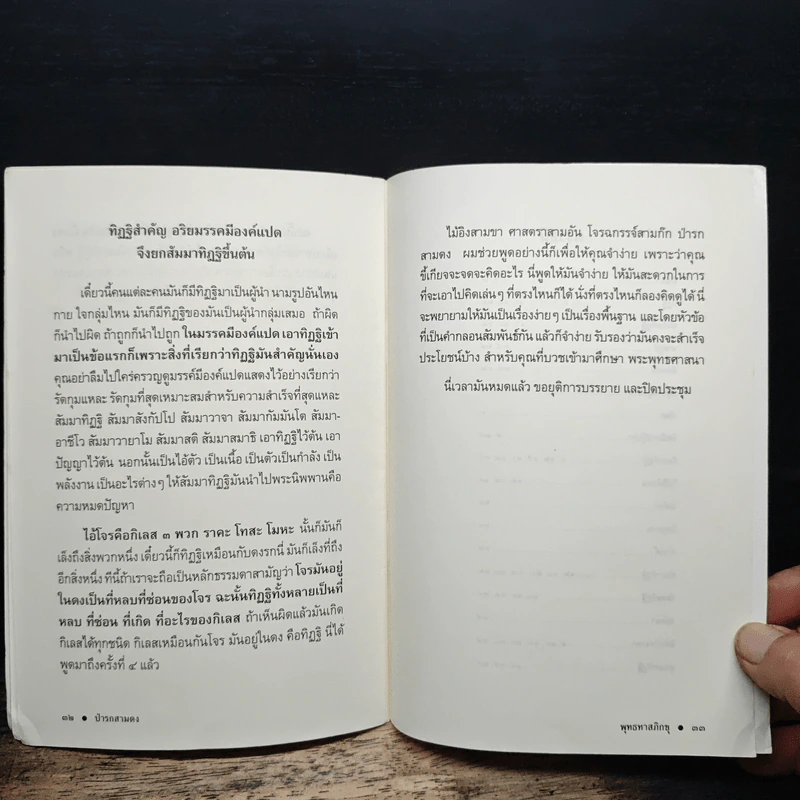 ทิฏฐิสำคัญ อริยมรรคมีองค์แปด
จึงยกสัมมาทิฏฐิขึ้นต้น
เดี๋ยวนี้คนแต่ละคนมันก็มีทิฏฐิมาเป็นผู้นำ นามรูปอันไหน
กาย ใจกลุ่มไหน มันก็มีทิฏฐิของมันเป็นผู้นำกลุ่มเสมอ ถ้าผิด
ก็นำไปผิด ถ้าถูกก็นำไปถูก ในมรรคมีองค์แปด เอาทิฏฐิเข้า
มาเป็นข้อแรกก็เพราะสิ่งที่เรียกว่าทิฏฐิมันสำคัญนั่นเอง
คุณอย่าลืมไปใคร่ครวญดูมรรค์มีองค์แปดแสดงไว้อย่างเรียกว่า
รัดกุมแหละ รัดกุมที่สุดเหมาะสมสำหรับความสำเร็จที่สุดแหละ
สัมมาทิฏฐิ สัมมาสังกัปโป สัมมาวาจา สัมมากัมมันโต สัมมา-
อาชีโว สัมมาวายาโม สัมมาสติ สัมมาสมาธิ เอาทิฏฐิไว้ต้น เอา
ปัญญาไว้ต้น นอกนั้นเป็นไอ้ตัว เป็นเนื้อ เป็นตัวเป็นกำลัง เป็น
พลังงาน เป็นอะไรต่างๆ ให้สัมมาทิฏฐิมันนำไปพระนิพพานคือ
ความหมดปัญหา
ไอ้โจรคือกิเลส ๓ พวก ราคะ โทสะ โมหะ นั้นก็มันก็
เล็งถึงสิ่งพวกหนึ่ง เดี๋ยวนี้ก็ทิฏฐิเหมือนกับดงรกนี่ มันก็เล็งที่ถึง
อีกสิ่งหนึ่ง ทีนี้ถ้าเราจะถือเป็นหลักธรรมดาสามัญว่า โจรมันอยู่
ในดงเป็นที่หลบที่ซ่อนของโจร ฉะนั้นทิฏฐิทั้งหลายเป็นที่
หลบ ที่ซ่อน ที่เกิด ที่อะไรของกิเลส ถ้าเห็นผิดแล้วมันเกิด
กิเลสได้ทุกชนิด กิเลสเหมือนกันโจร มันอยู่ในดง คือทิฏฐิ นี่ได้
พูดมาถึงครั้งที่ ๔ แล้ว
๓๒ ● ป่ารกสามดง
ไม้อิงสามขา ศาสตราสามอัน โจรฉกรรจ์สามก๊ก ป่ารก
สามดง ผมช่วยพูดอย่างนี้ก็เพื่อให้คุณจำง่าย เพราะว่าคุณ
ขี้เกียจจะจดจะคิดอะไร นี่พูดให้มันจำง่าย ให้มันสะดวกในการ
ที่จะเอาไปคิดเล่นๆ ที่ตรงไหนก็ได้ นั่งที่ตรงไหนก็ลองคิดดูได้ นี่
จะพยายามให้มันเป็นเรื่องง่ายๆ เป็นเรื่องพื้นฐาน และโดยหัวข้อ
ที่เป็นคำกลอนสัมพันธ์กัน แล้วก็จำง่าย รับรองว่ามันคงจะสำเร็จ
ประโยชน์บ้าง สำหรับคุณที่บวชเข้ามาศึกษา พระพุทธศาสนา
นี่เวลามันหมดแล้ว ขอยุติการบรรยาย และปิดประชุม
พุทธทาสภิกขุ ● ๓๓